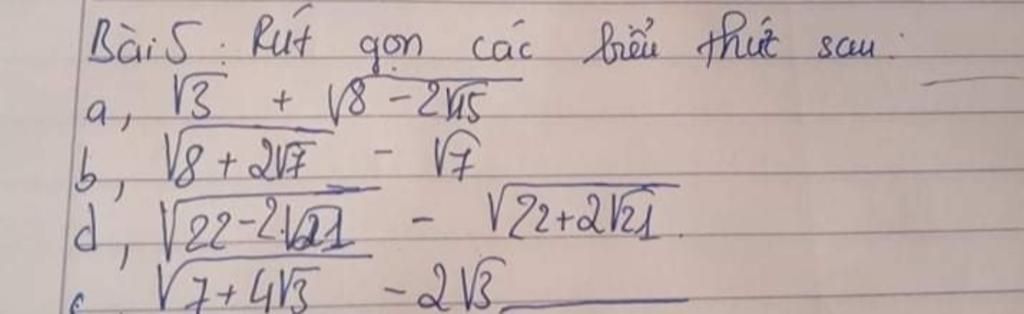 Bài 5: Rút gọn các biểu thức sau:
a, √3 + √(8 - 2√15)
b, √(8 + 2√7) - √7
d, √(22 - 2√21) - √(22 + 2√21)
√(7 + 4√3) - 2√3